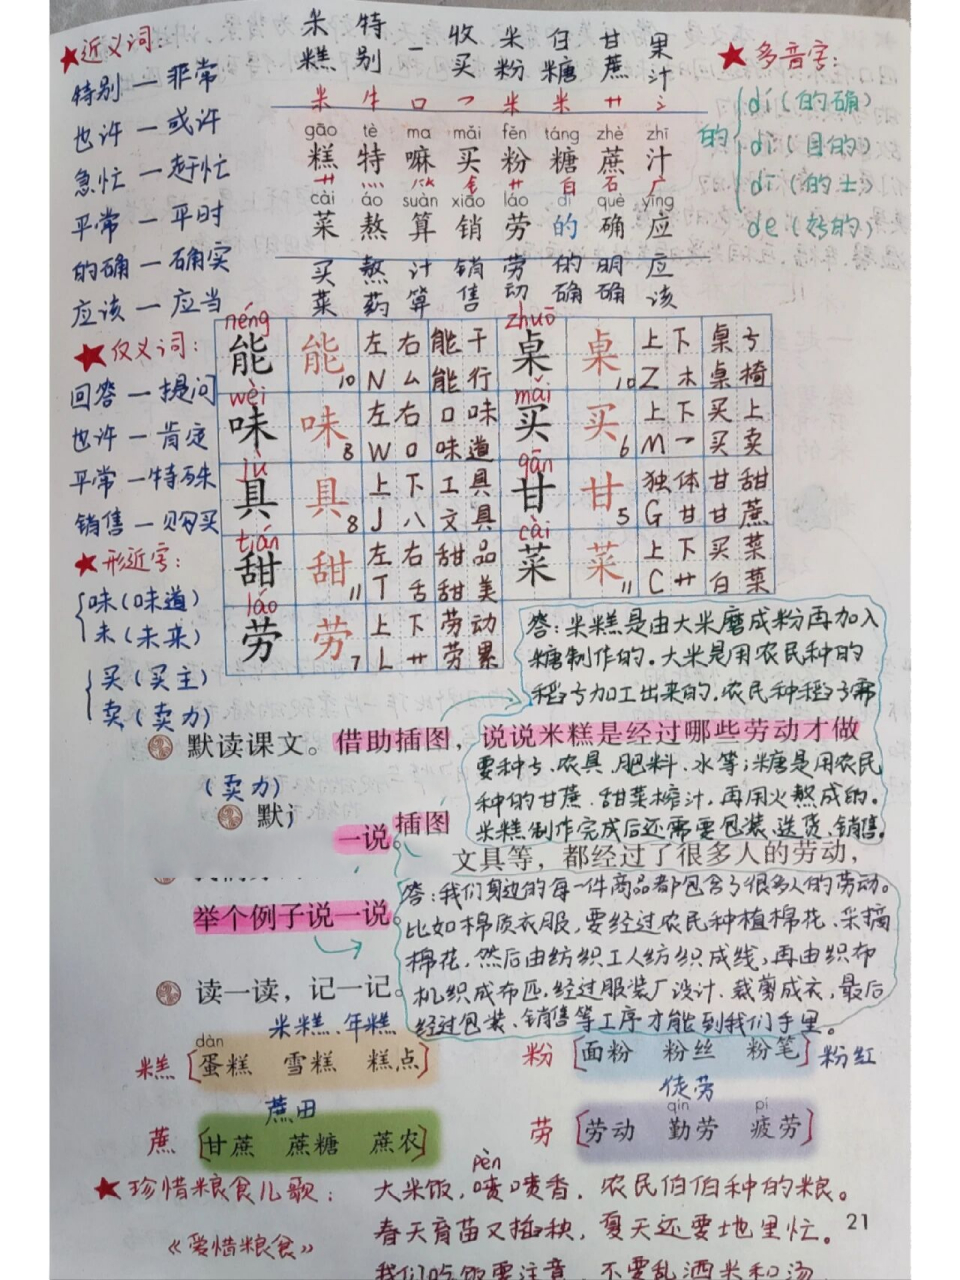 ★近义词:
特别一非常
也许一或许
急忙一赶忙
平常一平时
的确一确实
应该一应当
米糕 特别 一 收买 米粉 白糖 甘蔗 果汁
米 牛 口 乛 米 米 艹 氵
gāo tè ma mǎi fěn táng zhè zhī
糕 特 嘛 买 粉 糖 蔗 汁
艹 灬 钅 艹 白 石 广
cài áo suàn xiāo láo dí què yīng
菜 熬 算 销 劳 的 确 应
买菜 熬药 计算 销售 劳动 的确 明确 应该
★多音字:
的
dí(的确)
dì(目的)
dī(的士)
de(好的)
★反义词:
回答一提问
也许一肯定
平常一特殊
销售一购买
★形近字:
味(味道)
未(未来)
买(买主)
卖(卖力)
néng zhuō
能 能 10 左右 能干 桌 桌 10 上下 桌子
N 厶 能行 Z 木 桌椅
wèi mǎi
味 味 8 左右 口味 买 买 6 上下 买上
W 口 味道 M 乛 买卖
jù gān
具 具 8 上下 工具 甘 甘 5 独体 甘甜
J 八 文具 G 甘 甘蔗
tián cài
甜 甜 11 左右 甜品 菜 菜 11 上下 买菜
T 舌 甜美 C 艹 白菜
láo
劳 劳 7 上下 劳动
L 艹 劳累
答:米糕是由大米磨成粉再加入
糖制作的。大米是用农民种的
稻子加工出来的,农民种稻子需
默读课文。借助插图,说说米糕是经过哪些劳动才做
要种子、农具、肥料、水等;糖是用农民
(卖力)
种的甘蔗、甜菜榨汁,再用火熬成的。
默
插图
米糕制作完成后还需要包装、送货、销售。
一说。
文具等,都经过了很多人的劳动,
答:我们身边的每一件商品都包含了很多人的劳动。
举个例子说一说。
比如棉质衣服,要经过农民种植棉花、采摘
棉花,然后由纺织工人纺织成线,再由织布
机织成布匹,经过服装厂设计、裁剪成衣,最后
读一读,记一记。
经过包装、销售等工序才能到我们手里。
米糕、年糕
dàn
糕[蛋糕 雪糕 糕点]
粉[面粉 粉丝 粉笔]粉红
蔗田
徒劳
qín pí
蔗[甘蔗 蔗糖 蔗农]
劳[劳动 勤劳 疲劳]
pèn
★珍惜粮食儿歌: 大米饭,喷喷香,农民伯伯种的粮。
21
《爱惜粮食》 春天育苗又插秧,夏天还要地里忙。
我们吃饭要注意,不要乱洒米和汤